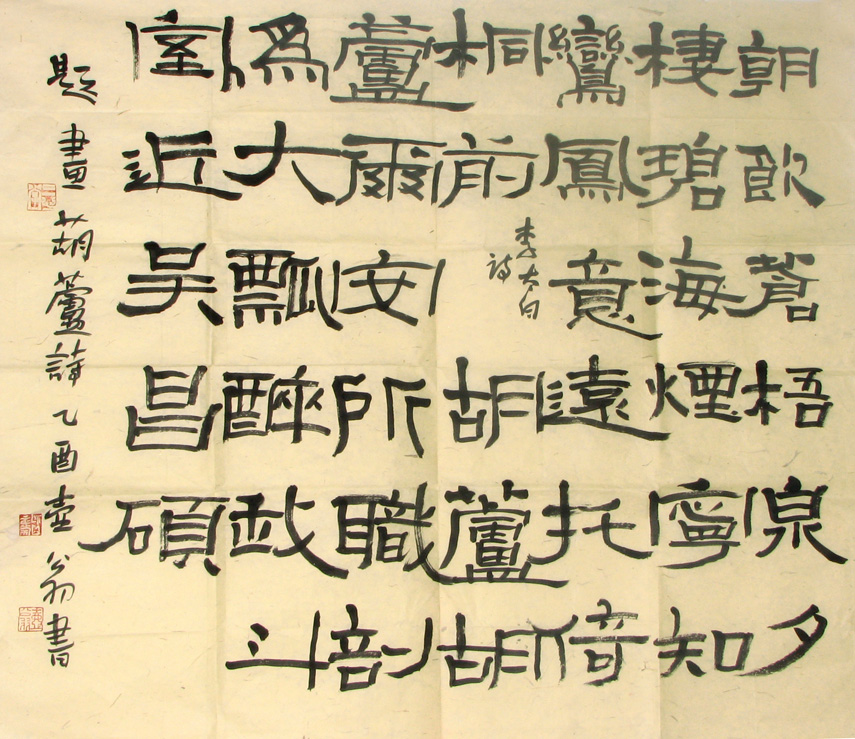 朝飲蒼梧泉夕
棲碧海煙寧知
鸞鳳意遠托倚
桐前
李太白
詩
胡蘆胡
蘆爾安所職剖
為大瓢醉我斗
室近吳昌碩
題畫葫蘆詩乙酉壺翁書